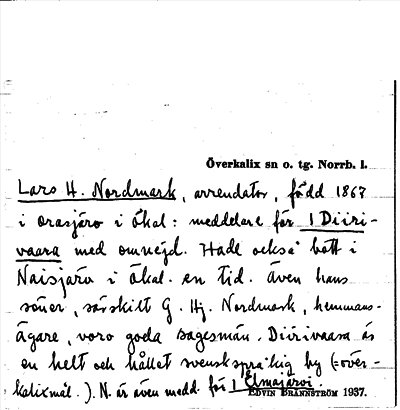 Överkalix sn o. tg. Norrb. l.
Lars H. Nordmark, arrendator, född 1867
i Orasjärv i Ökal: meddelare för 1 Diiri-
vaara med omnejd. Hade också bott i
Naisjärv i Ökal. en tid. Även hans
söner, särskilt G. Hj. Nordmark, hemmans-
ägare, voro goda sagesmän. Diirivaara är
en helt och hållet svensksprå̊kig by (=över-
kalixmål.). N. är även medd. för 1 Elmajärvi.
EDVIN BRÄNNSTRÖM 1937.